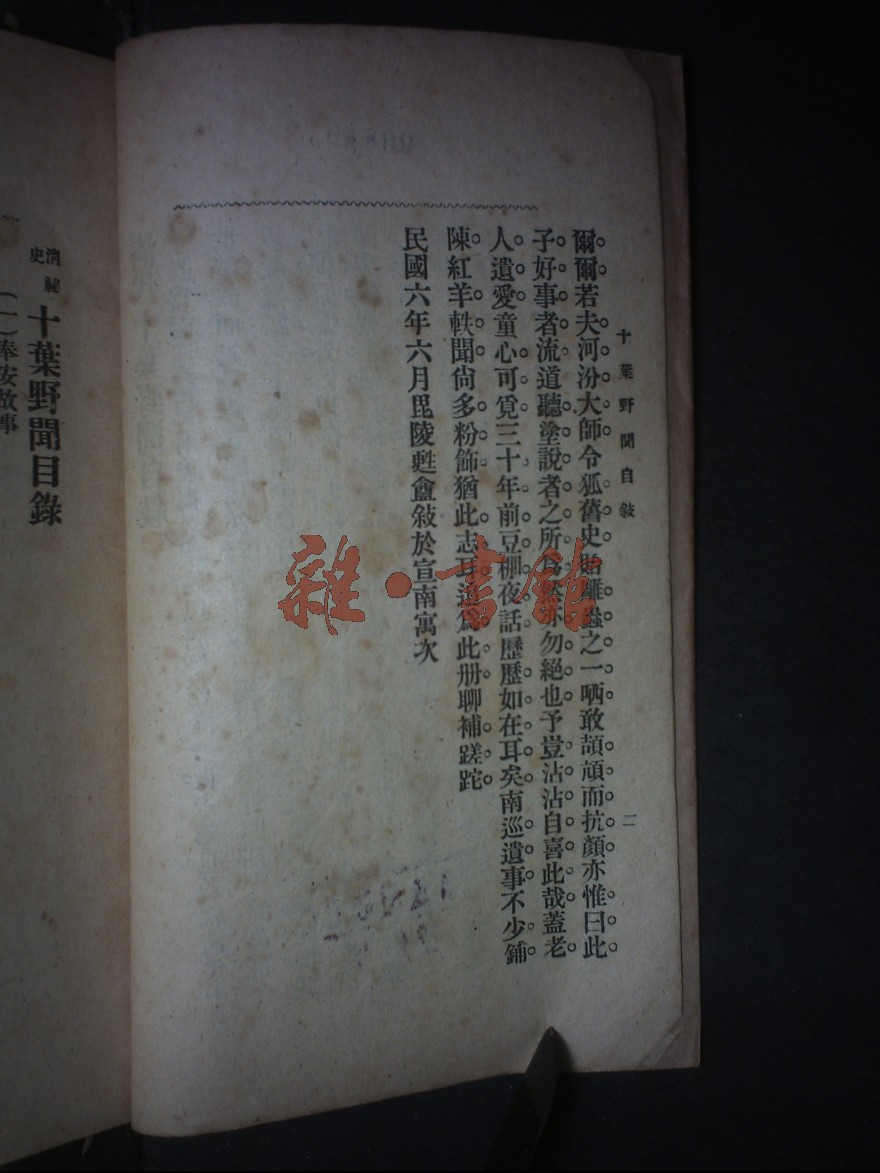 十葉野聞自敍
二
爾爾若夫河汾大師令狐舊史始雕蟲之一哂敢頡頏而抗顏亦惟曰此
子好事者流道聽塗說者之所爲然亦勿絕也予豈沾沾自喜此哉蓋老
人遺愛童心可覓三十年前豆棚夜話歷歷如在耳矣南巡遺事不少鋪
陳紅羊軼聞尙多粉飾猶此志耳造爲此册聊補蹉跎
民國六年六月毘陵甦盦敍於宣南寓次
清祕史
十葉野聞目錄
(一)奉安故事
雜·書館